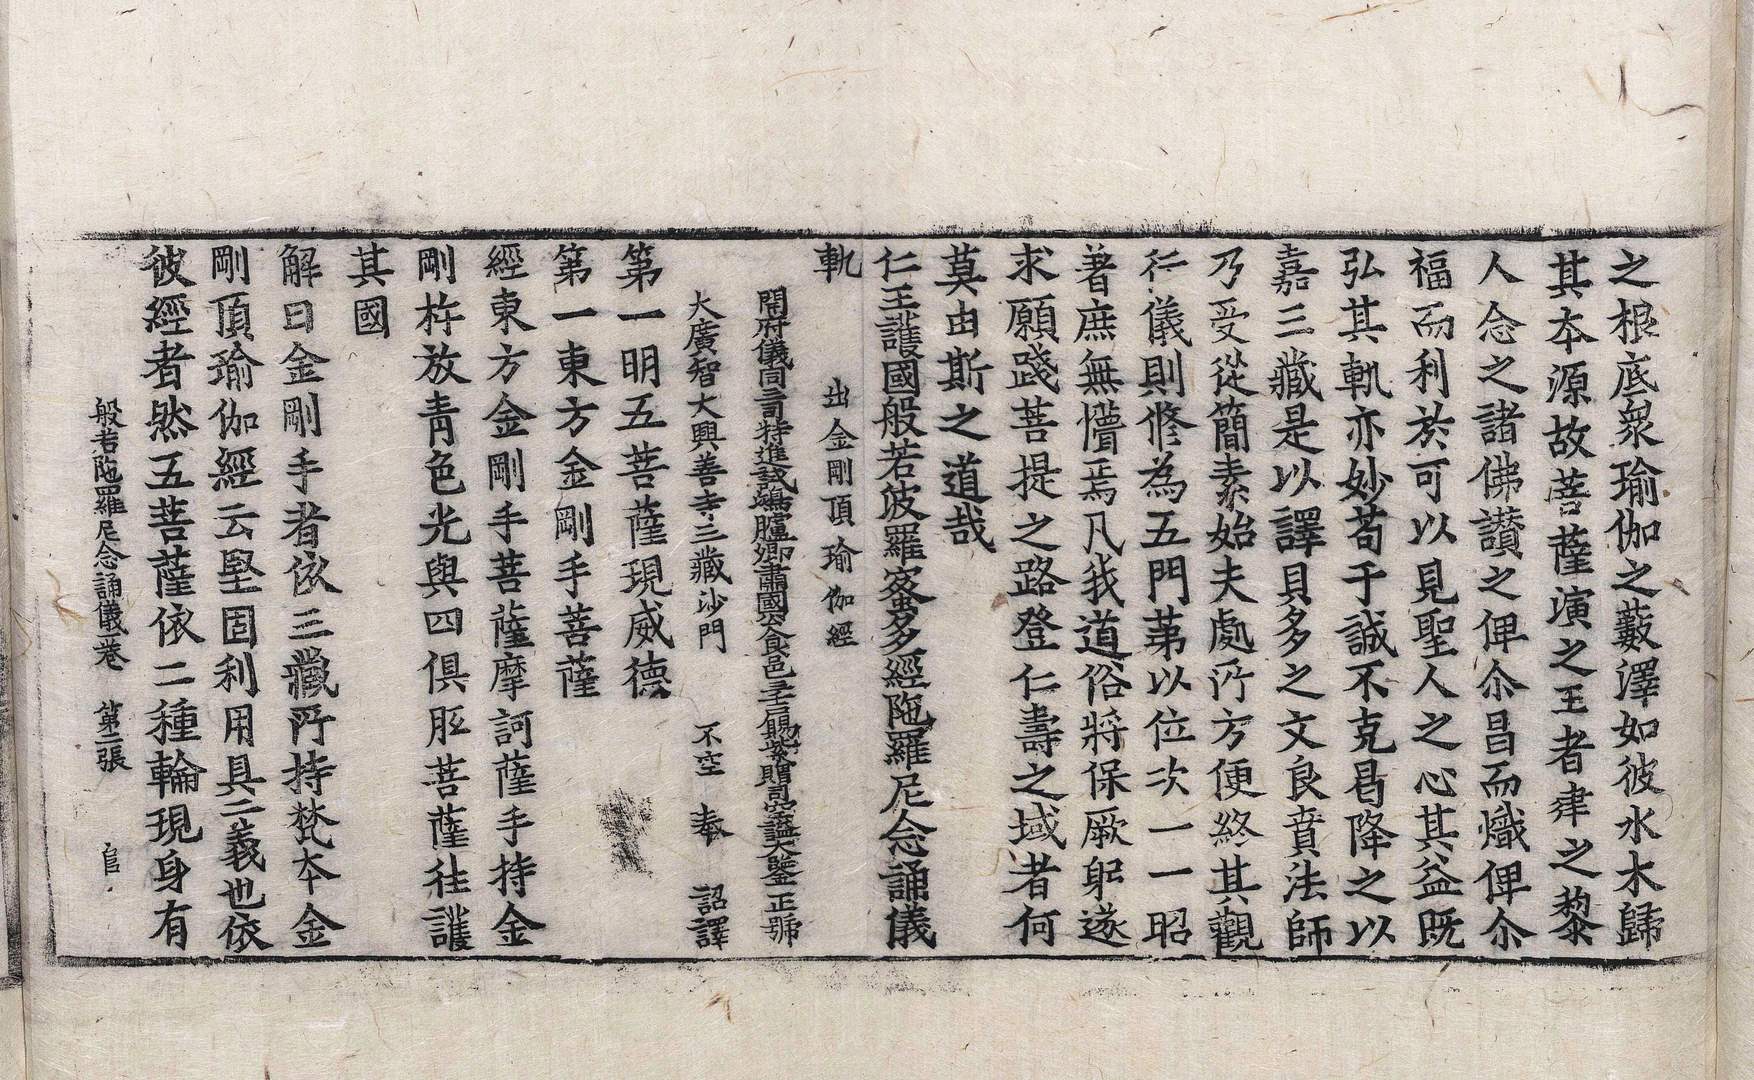 之根底衆瑜伽之藪澤如彼水木歸
其本源故菩薩演之王者建之黎
人念之諸佛讃之俾尒昌而熾俾尒
福而利於可以見聖人之心其益既
弘其軌亦妙苟于誠不克曷降之以
嘉三藏是以譯貝多之文良賁法師
乃受從簡素始夫處所方便終其觀
行儀則修為五門苐以位次一一昭
著庶無懵焉凡我道俗將保厥躬遂
求願踐菩提之路登仁壽之域者何
莫由斯之道哉
仁王護國般若波羅蜜多經陁羅尼念誦儀
軌 出金剛頂瑜伽經
開府儀同三司特進試鴻臚卿肅國公食邑三千戶賜紫贈司空謚大鑒正號
大廣智大興善寺三藏沙門 不空 奉 詔譯
第一明五菩薩現威德
第一東方金剛手菩薩
經東方金剛手菩薩摩訶薩手持金
剛杵放青色光與四俱胝菩薩往護
其國
解曰金剛手者依三藏所持梵本金
剛頂瑜伽經云堅固利用具二義也依
彼經者然五菩薩依二種輪現身有
般若陁羅尼念誦儀一卷 第二張